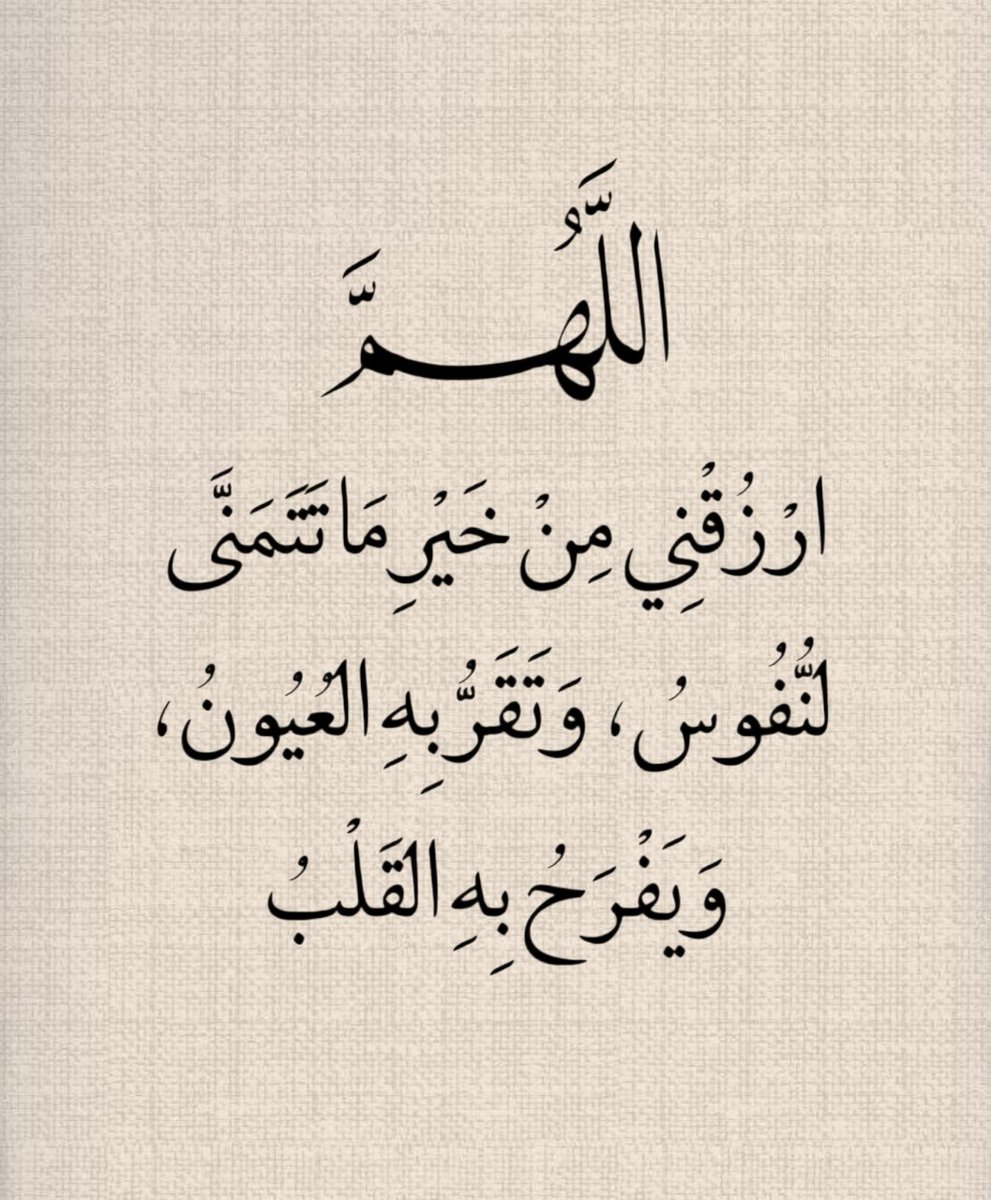 اللَّهُمَّ
ارْزُقْنِي مِنْ خَيْرِ مَا تَتَمَنَّى
لنُّفُوسُ، وَتَقَرُّ بِهِ العُيُونُ،
وَيَفْرَحُ بِهِ القَلْبُ